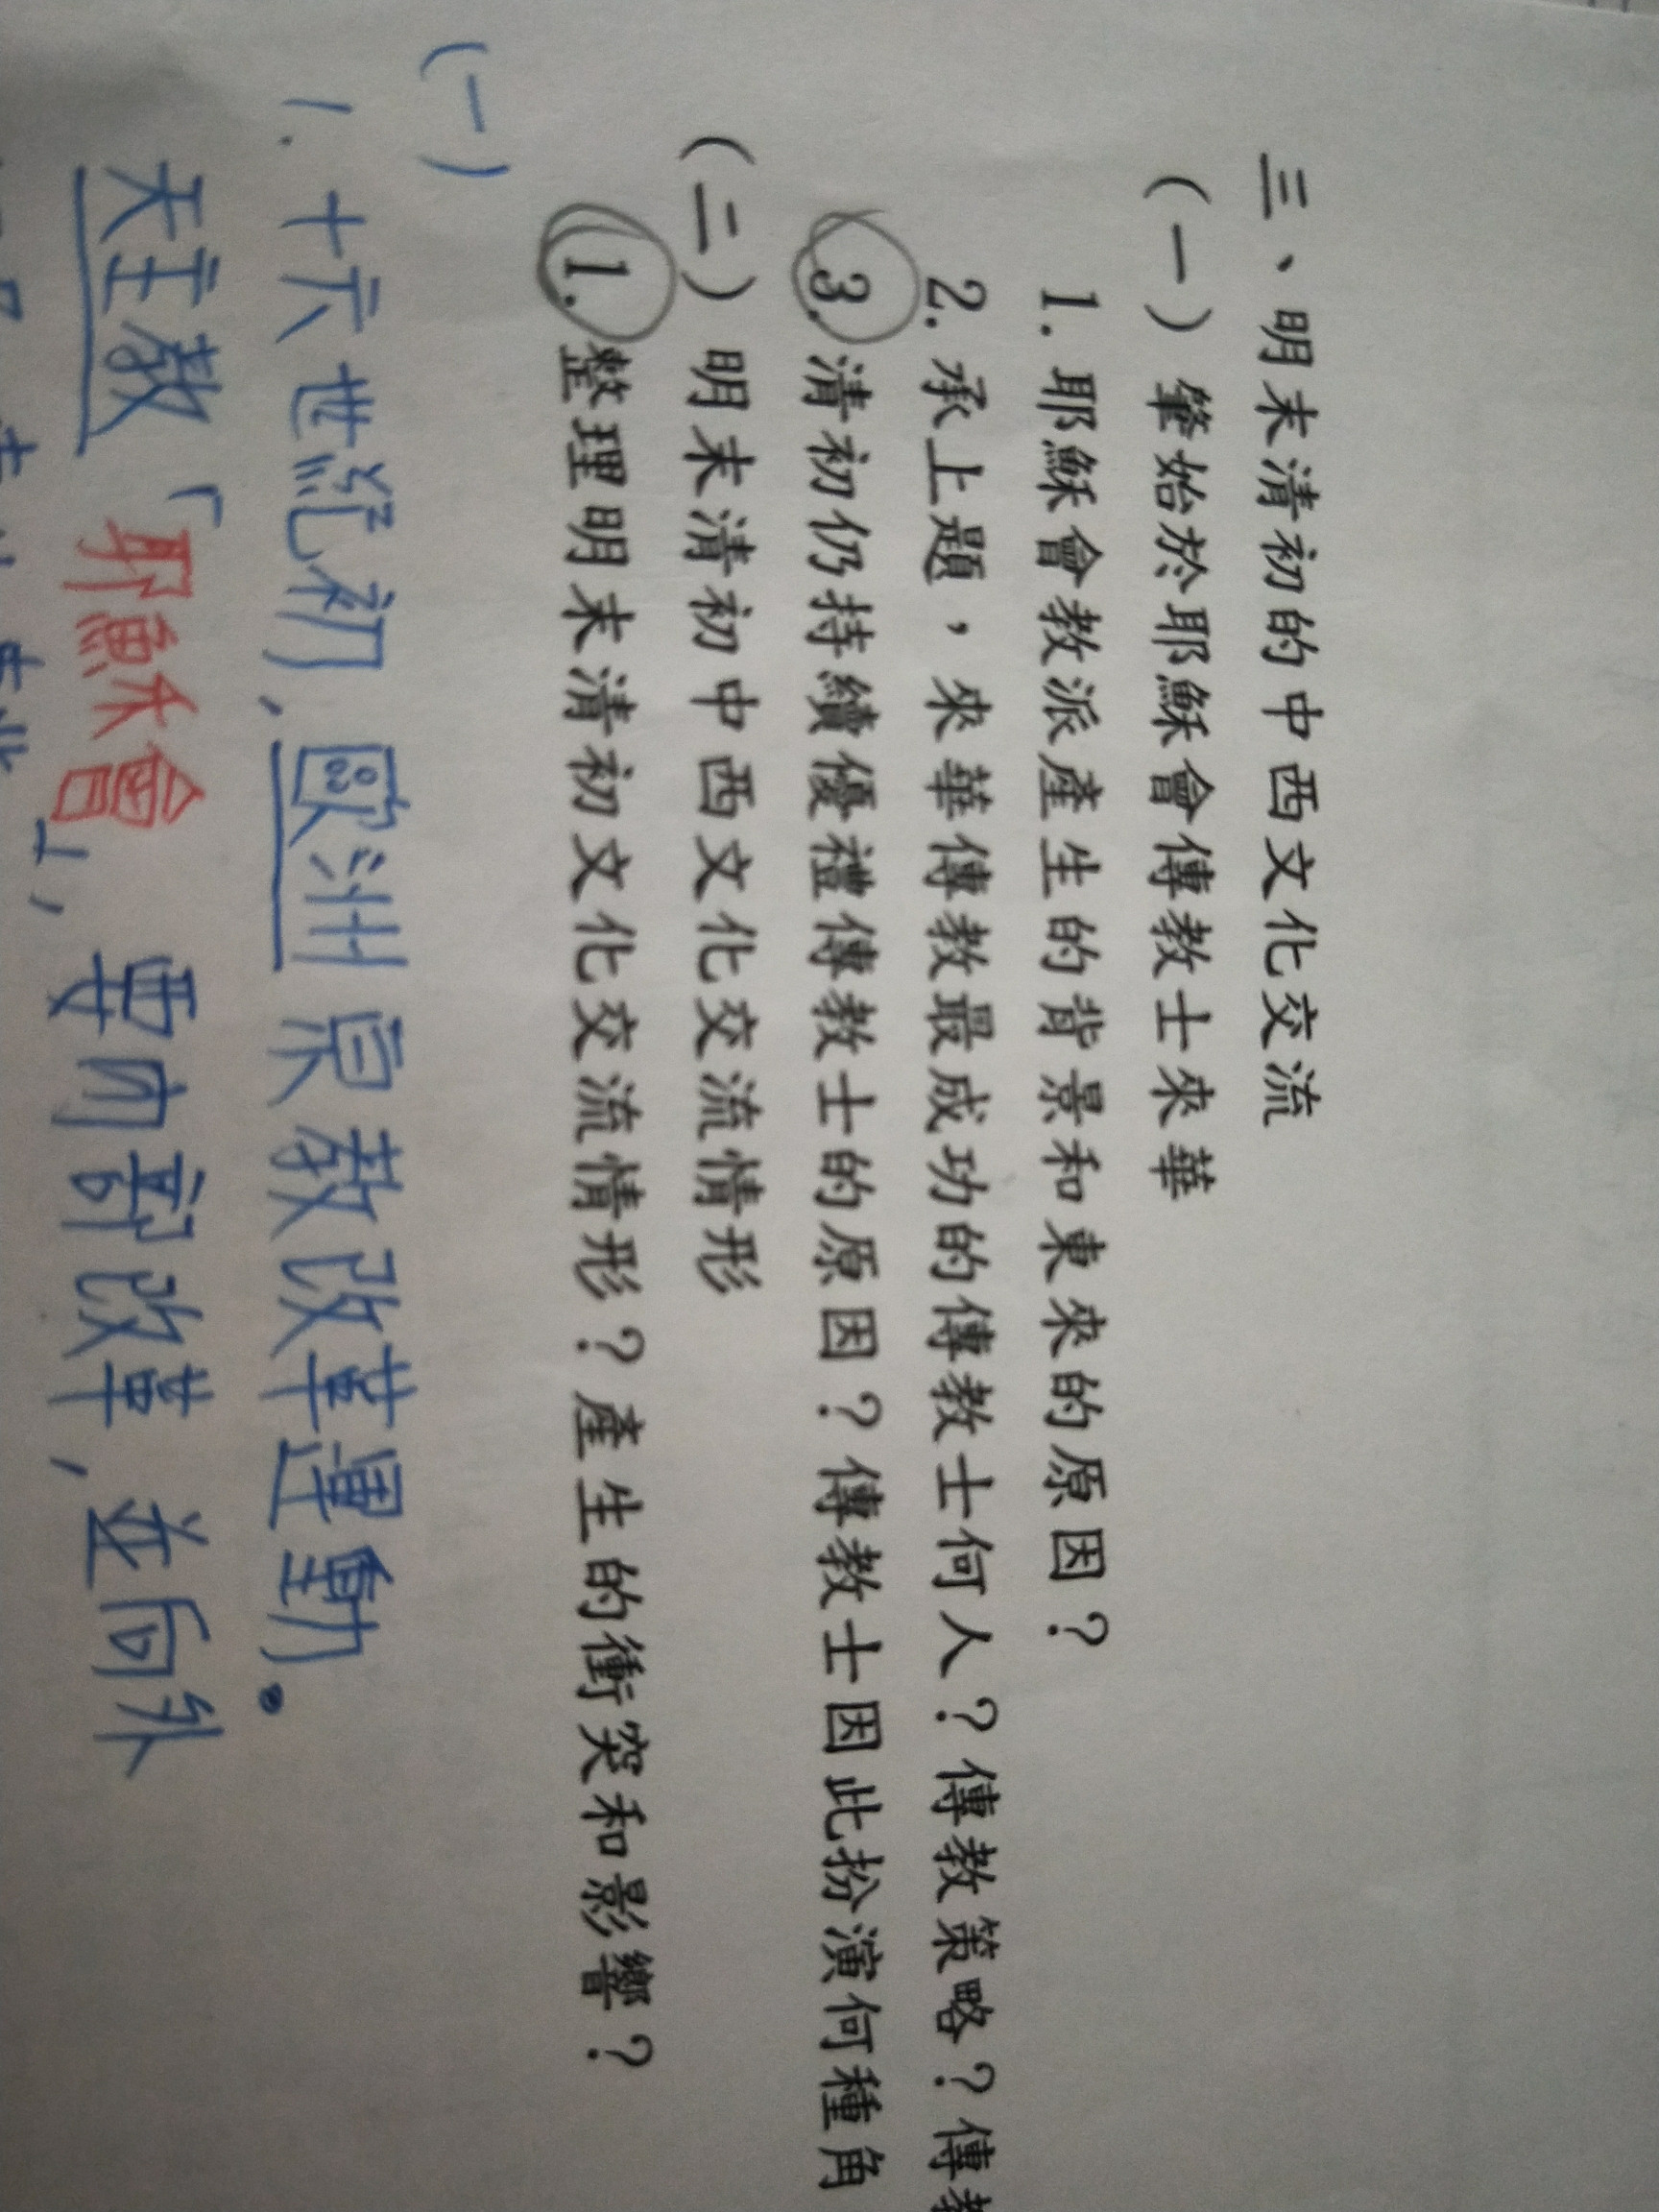 三、明末清初的中西文化交流
(一)肇始於耶穌會傳教士來華
1.耶穌會教派產生的背景和東來的原因?
2.承上題,來華傳教最成功的傳教士何人?傳教策略?傳教
3.清初仍持續優禮傳教士的原因?傳教士因此扮演何種角
(二)明末清初中西文化交流情形
1.整理明末清初文化交流情形?產生的衝突和影響?
(一)
1.十六世紀初,歐洲宗教改革運動。
天主教「耶穌會」,要內部改革,並向外